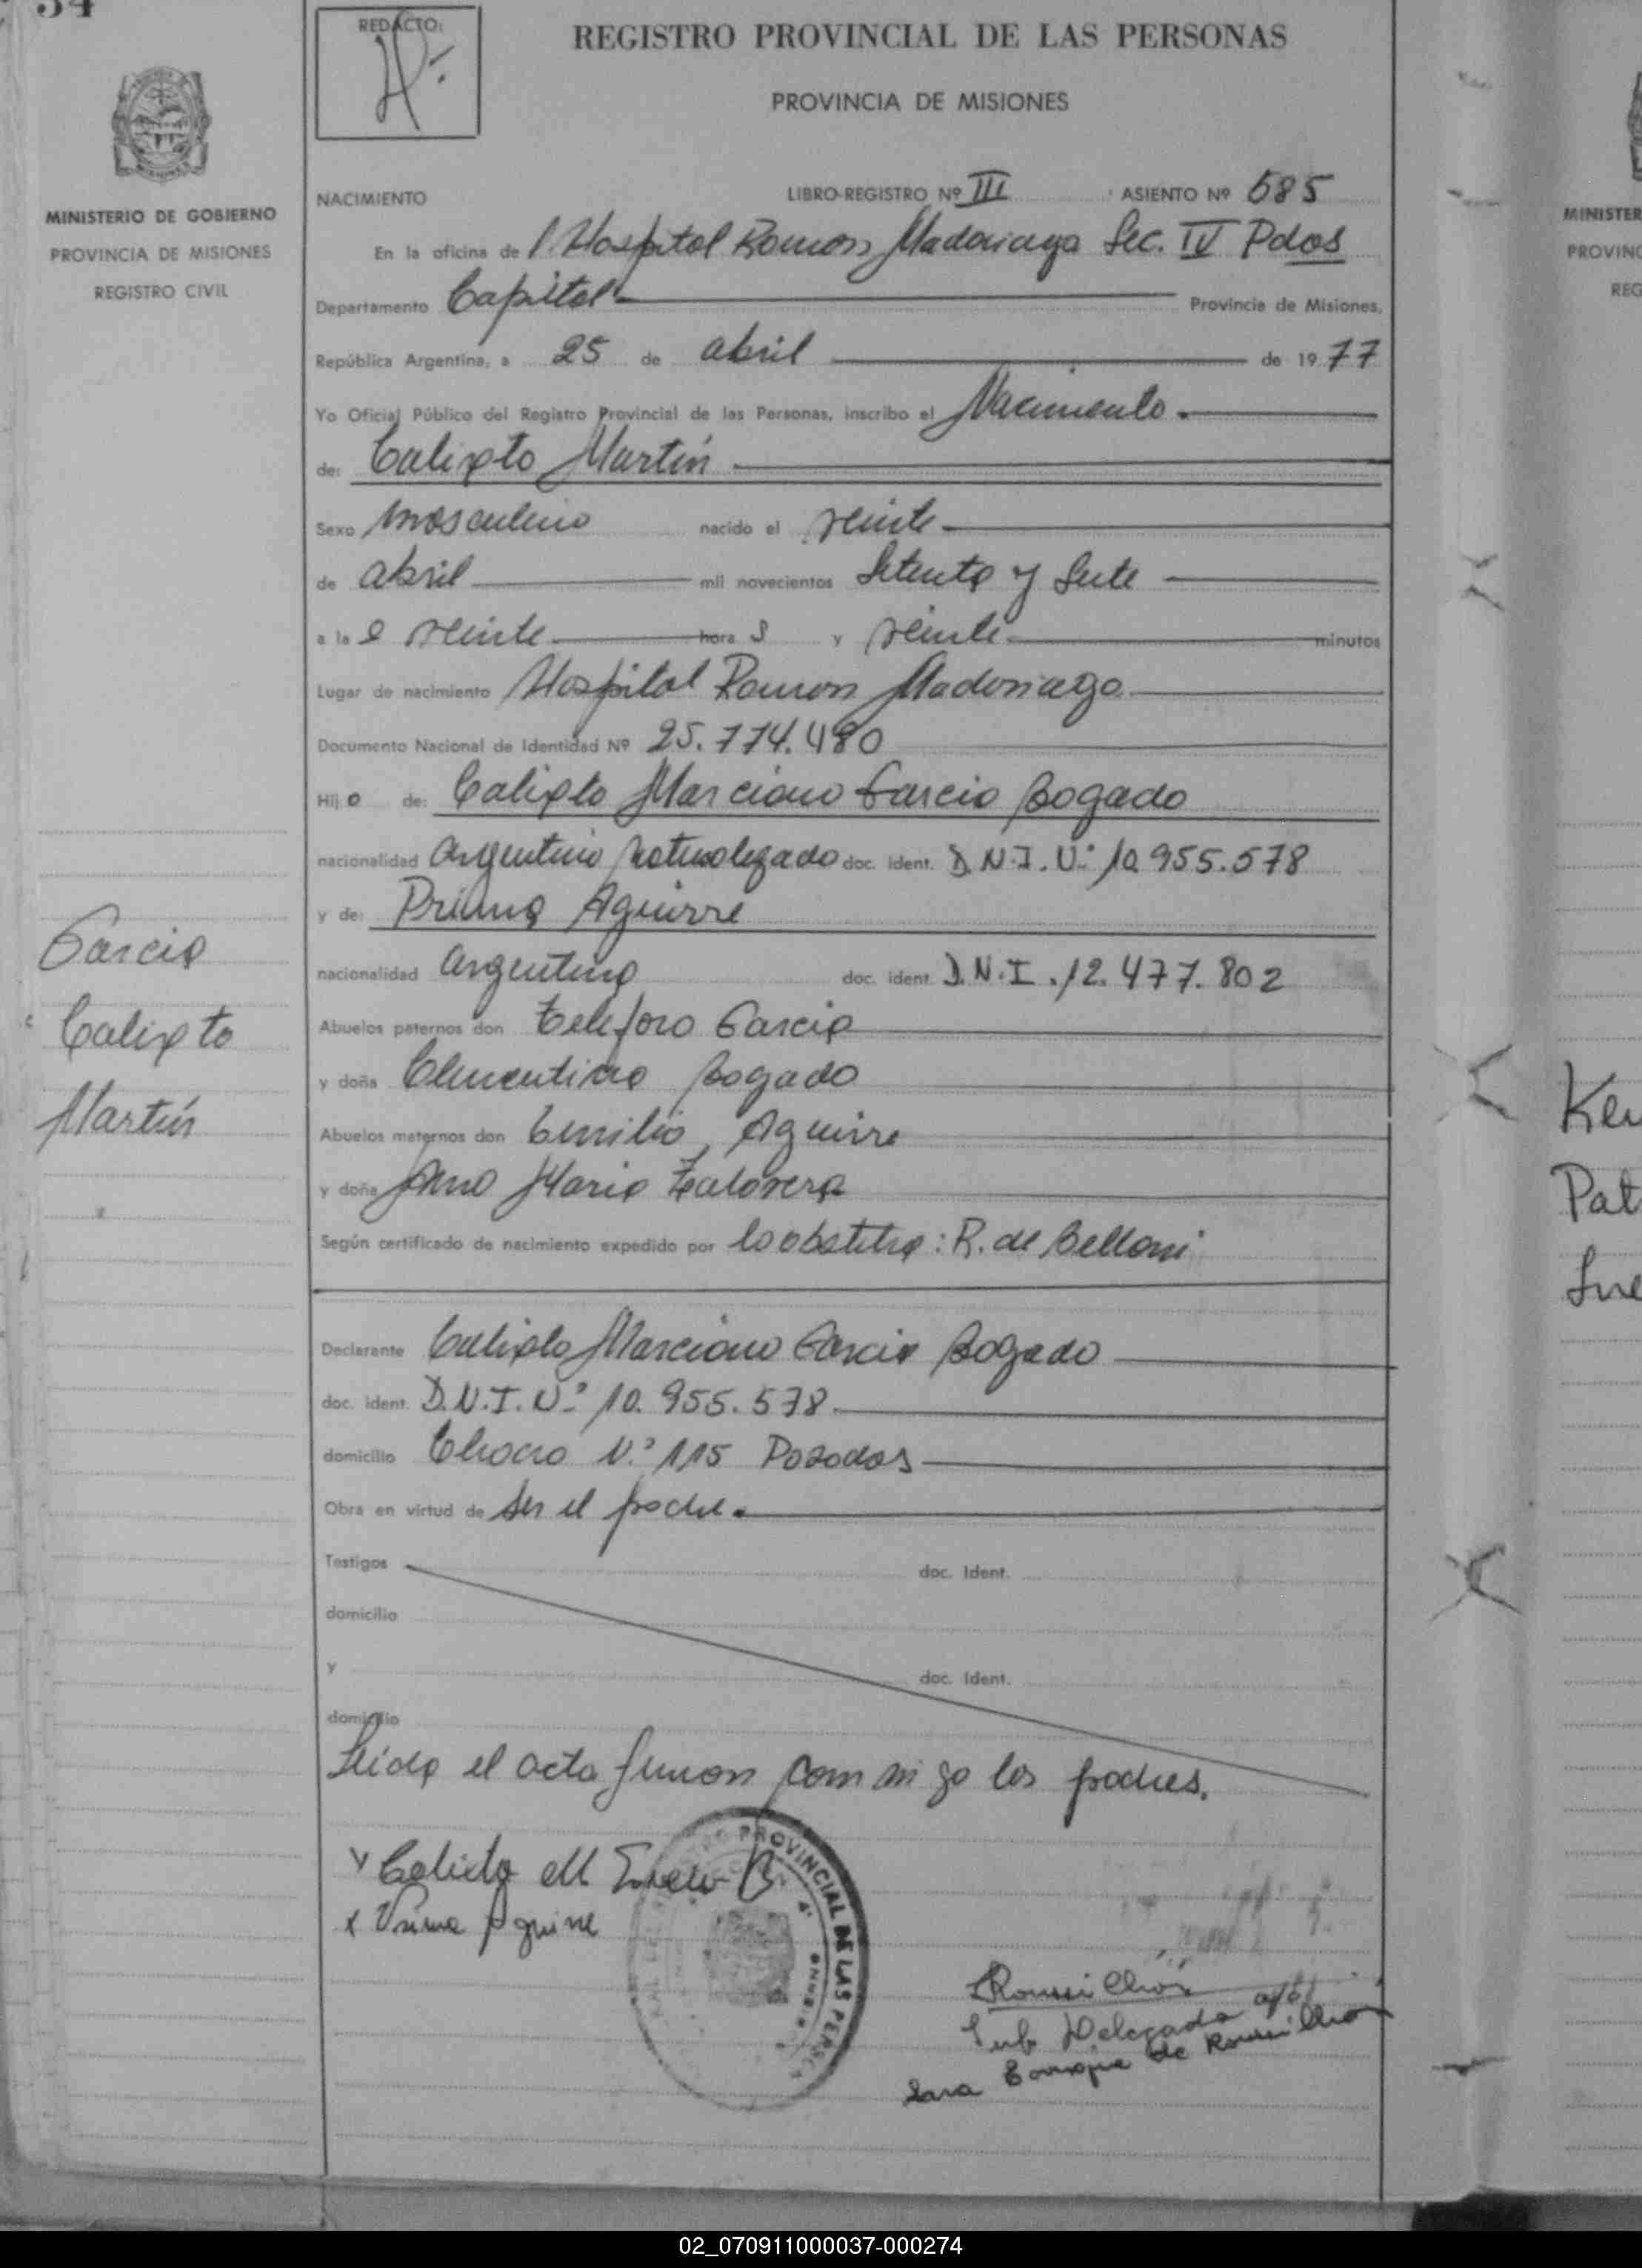 54
MINISTERIO DE GOBIERNO
PROVINCIA DE MISIONES
REGISTRO CIVIL
Garcia
Calixto
Martín
REDACTO:
REGISTRO PROVINCIAL DE LAS PERSONAS
PROVINCIA DE MISIONES
NACIMIENTO LIBRO-REGISTRO Nº III ASIENTO Nº 585
En la oficina de Hospital Ramon Madariaga Sec. IV Pdas
Departamento Capital Provincia de Misiones,
República Argentina, a 25 de abril de 1977
Yo Oficial Público del Registro Provincial de las Personas, inscribo el Nacimiento.
de: Calixto Martín
Sexo masculino nacido el veinte
de abril mil novecientos Setenta y Siete
a la s veinte hora s y veinte minutos
Lugar de nacimiento Hospital Ramon Madariaga
Documento Nacional de Identidad Nº 25.774.480
Hij o de: Calixto Marciano Garcia Bogado
nacionalidad argentino naturalizado doc. Ident. D.N.I. Nº 10.955.578
y de: Prima Aguirre
nacionalidad argentina doc. ident. D.N.I. 12.477.802
Abuelos paternos don Telesforo Garcia
y doña Clementina Bogado
Abuelos maternos don Emilio Aguirre
y doña Ana Maria Talavera
Según certificado de nacimiento expedido por la obstetra: R. de Belloni
Declarante Calixto Marciano Garcia Bogado
doc. ident. D.N.I. Nº 10.955.578.
domicilio Chaco Nº 115 Posadas
Obra en virtud de ser el padre.
Testigos doc. Ident.
domicilio
y doc. Ident.
domicilio
Leida el acta firman conmigo los padres.
x Calixto M Garcia B
x Prima Aguirre
PROVINCIAL DE LAS PERSO
Sub Delegada
Sara de
MINISTER
PROVINC
REG
Pat
02_070911000037-000274